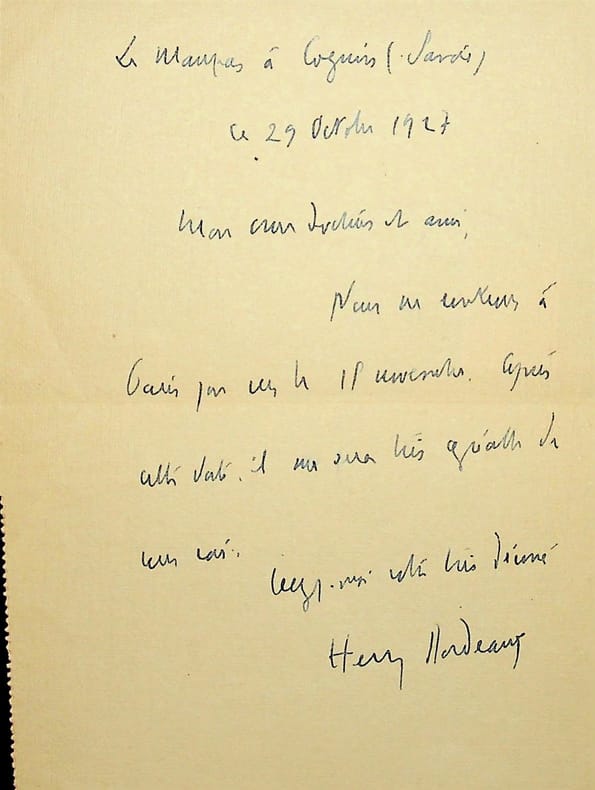 Le Maupas à Cognin (Savoie)
ce 29 Octobre 1927
Mon cher Docteur et ami,
Nous ne rentrons à
Paris que vers le 18 novembre. Après
cette date, il me sera très agréable de
vous voir.
Croyez-moi votre très dévoué
Henry Bordeaux